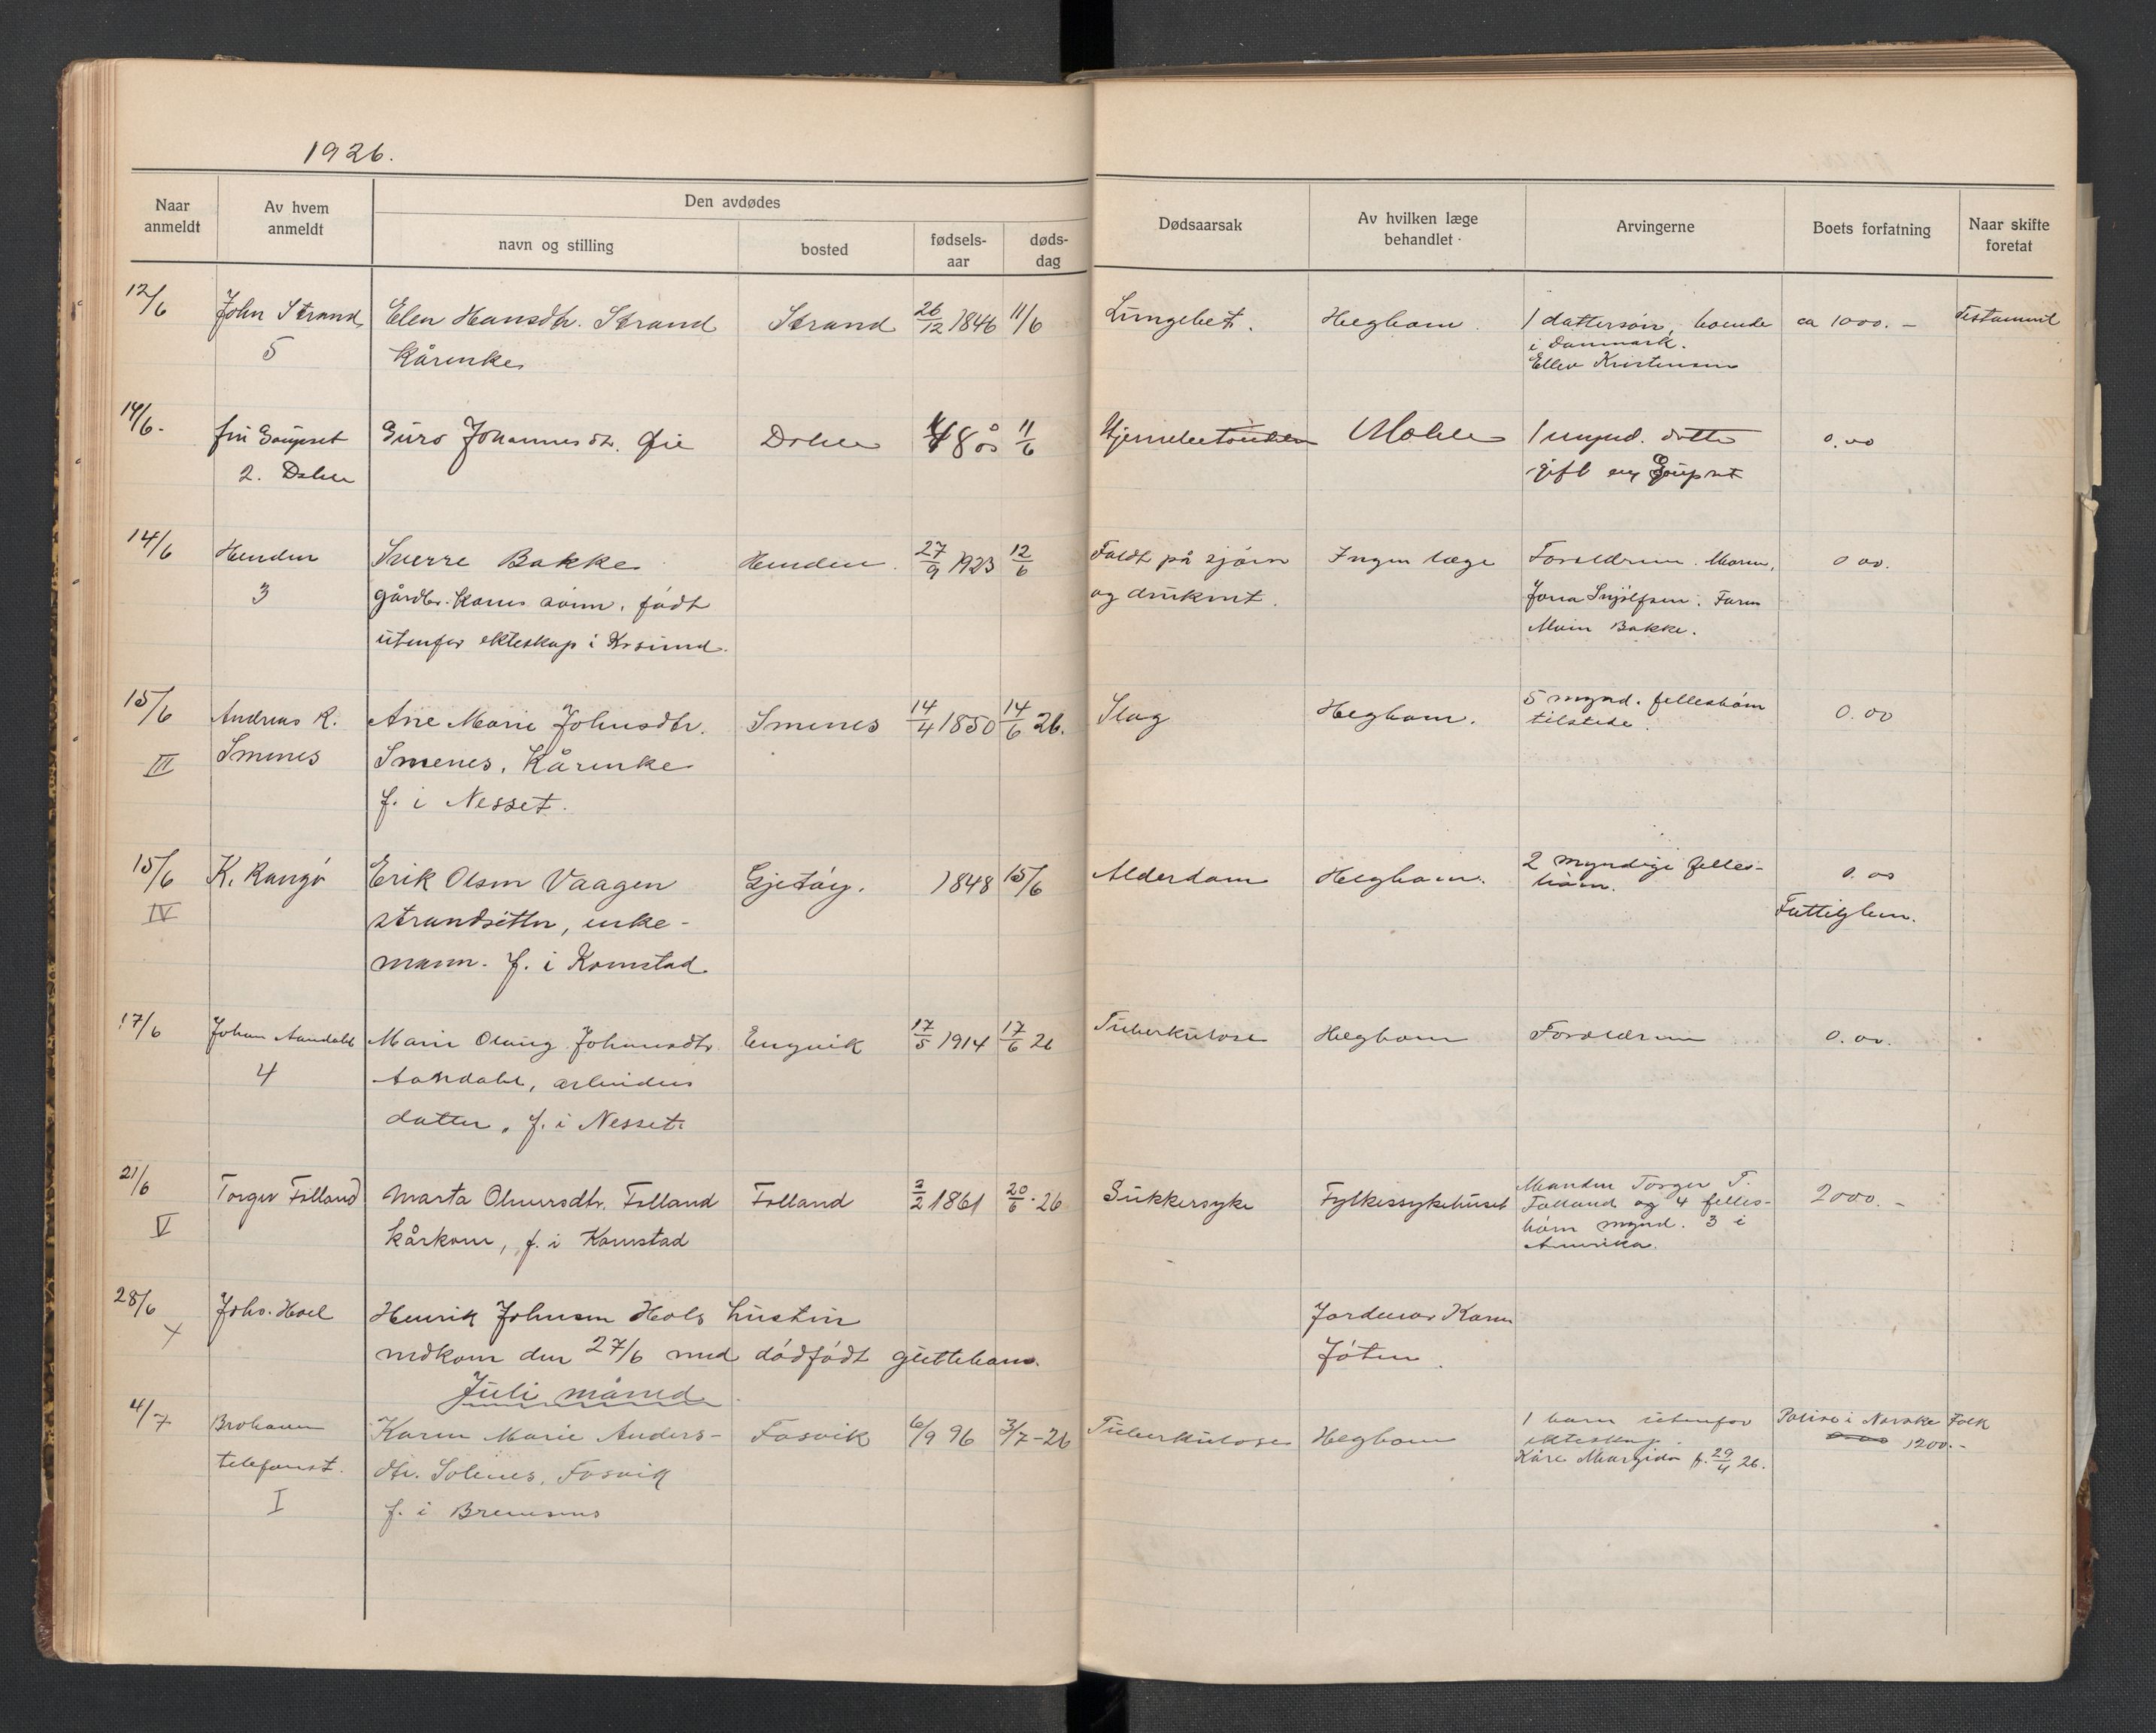 1926.
Naar anmeldt
Av hvem anmeldt
Den avdødes
navn og stilling
bosted
fødsels-aar
døds-dag
Dødsaarsak
Av hvilken læge behandlet
Arvingerne
Boets forfatning
Naar skifte foretat
12/6 John Strand Elen Hansdtr. Strand Strand 26/12 1846 11/6 Lungebet. Hegbom. 1 dattersøn, boende ca 1000.- Testament
5 kårenke i Danmark.
Kristensen
14/6. fru Guro Johannesdtr. Øie Dolen 11/6 1 mynd. datter 0.00
2. Dolen gift
14/6 Henden Sverre Bakke Henden. 27/9 1923 12/6 Faldt på sjøen Ingen læge Foreldrene. Moren, 0 00.
3 gårdbr. Kones sønn, født og druknet. Faren
utenfor ekteskap i Krsund. Bakke.
15/6 Andreas R. Ane Marie Johnsdtr. Smenes 14/4 1850 14/6 26. Slag Hegbom. 5 mynd. fellesbørn 0.00
III Smenes Smenes, Kårenke tilstede.
f. i Nesset.
15/6 K. Rangø Erik Olsen Vaagen Gjetøy. 1848 15/6 Alderdom Hegbom. 2 myndige felles- 0.00
IV strandsitter, enke- børn. Fattiglem.
mann. f. i Kornstad.
17/6 Johan Aandahl Marie Johansdtr. Engvik 17/5 1914 17/6 26 Tuberkulose Hegbom Foreldrene 0.00.
4 Aandahl, arbeiders
datter, f. i Nesset.
21/6 Torger Folland Marta Olinersdtr. Folland Folland 2/2 1861 20/6. 26 Sukkersyke Fylkessykehuset Manden Torger T. 2000.-
V kårkone, f. i Kornstad Folland og 4 felles-
børn mynd. 3 i
Amerika.
28/6 Johs. Hoel Henrik Johnsen Hols hustru Jordmor Karen
nedkom den 27/6 med dødfødt guttebarn. Jøten.
Juli måned.
4/7 Brohaven Karen Marie Anders- Fosvik 6/9 96 3/7-26 Tuberkulose Hegbom 1 barn utenfor Polise i Norske Folk
telefonst. dtr. Solenes, Fosvik ekteskap. 1200.-
I f. i Bremsnes Kåre f. 29/4 26.